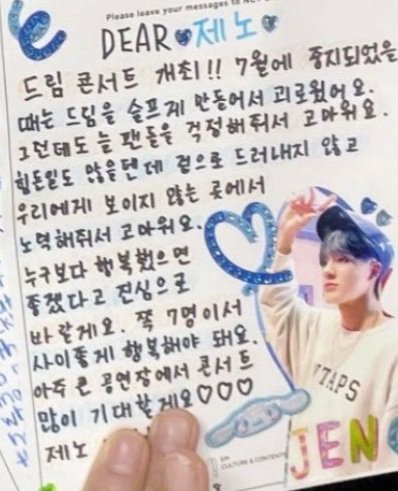 Please leave your messages to NC
DEAR 제노
드림 콘서트 개최!! 7월에 중지되었을
때는 드림을 슬프게 만들어서 괴로웠어요.
그런데도 늘 팬들을 걱정해줘서 고마워요.
힘든일도 많을텐데 겉으로 드러내지 않고
우리에게 보이지 않는 곳에서
노력해줘서 고마워요.
누구보다 행복했으면
좋겠다고 진심으로
바랄게요. 쭉 7명이서
사이좋게 행복해야 돼요.
아주 큰 공연장에서 콘서트
많이 기대할게요♡♡♡
제노
VTAPS
CULTURE & CONTENTS
JEN